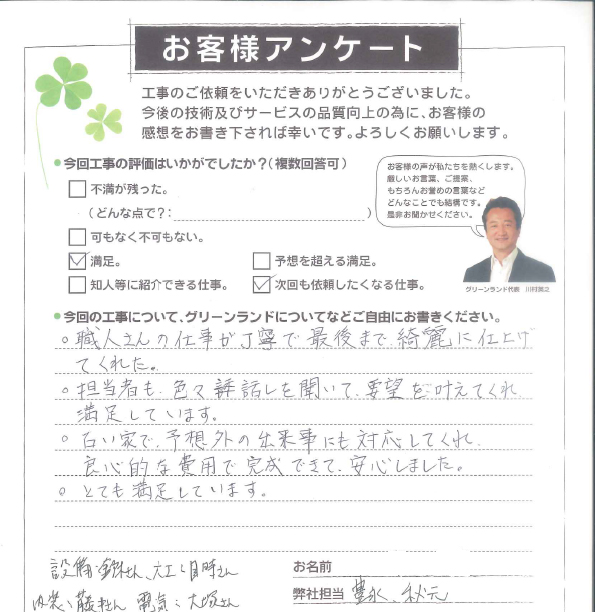 お客様アンケート
工事のご依頼をいただきありがとうございました。
今後の技術及びサービスの品質向上の為に、お客様の
感想をお書き下されば幸いです。よろしくお願いします。
今回工事の評価はいかがでしたか?(複数回答可)
不満が残った。
(どんな点で?: )
可もなく不可もない。
満足。
予想を超える満足。
知人等に紹介できる仕事。
次回も依頼したくなる仕事。
お客様の声が私たちを熱くします。
厳しいお言葉、ご提案、
もちろんお誉めの言葉など
どんなことでも結構です。
是非お聞かせください。
グリーンランド代表 川村
今回の工事について、グリーンランドについてなどご自由にお書きください。
○職人さんの仕事が丁寧で最後まで綺麗に仕上げ
てくれた。
○担当者も、色々話しを聞いて、要望を叶えてくれ
満足しています。
○古い家で、予想外の出来事にも対応してくれ、
良心的な費用で完成できて、安心しました。
○とても満足しています。
設備:さん、大工:さん
内装:藤村さん 電気:大塚さん
お名前
弊社担当 豊永、秋元